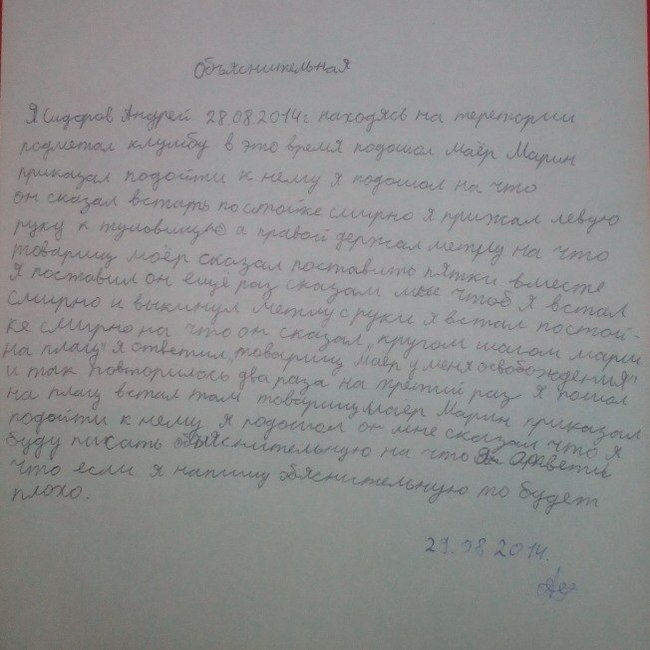 Объяснительная
Я Сидоров Андрей 28.08.2014г. находясь на теретории
подметал клумбу в это время подошол маёр Марин
приказал подойти к нему я подошол на что
он сказал встать постойке смирно я прижал левую
руку к туловищу а правой держал метлу на что
товарищ моёр сказал поставить пятки вместе
Я поставил он ещё раз сказал мне чтоб я встал
смирно и выкинул метлу с руки я встал постой-
ке смирно на что он сказал „кругом шагом марш
на плац" я ответил „товарищ маёр у меня освобождения"
и так повторилось два раза на третий раз я пошол
на плац встал там товарищ маёр Марин приказал
подойти к нему я подошол он мне сказал что я
буду писать объяснительную на что я ответил
что если я напишу обяснительную то будет
плохо.
29.08 2014.